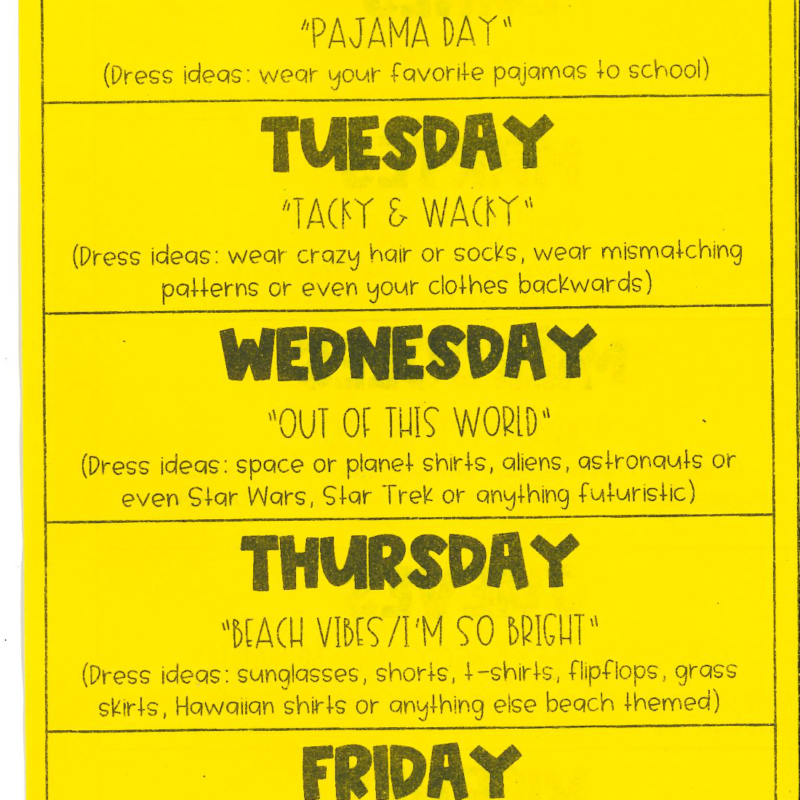 "PAJAMA DAY"
(Dress ideas: wear your favorite pajamas to school)
TUESDAY
"TACKY & WACKY"
(Dress ideas: wear crazy hair or socks, wear mismatching
patterns or even your clothes backwards)
WEDNESDAY
"OUT OF THIS WORLD"
(Dress ideas: space or planet shirts, aliens, astronauts or
even Star Wars, Star Trek or anything futuristic)
THURSDAY
"BEACH VIBES/I'M SO BRIGHT"
(Dress ideas: sunglasses, shorts, t-shirts, flipflops, grass
skirts, Hawaiian shirts or anything else beach themed)
FRIDAY